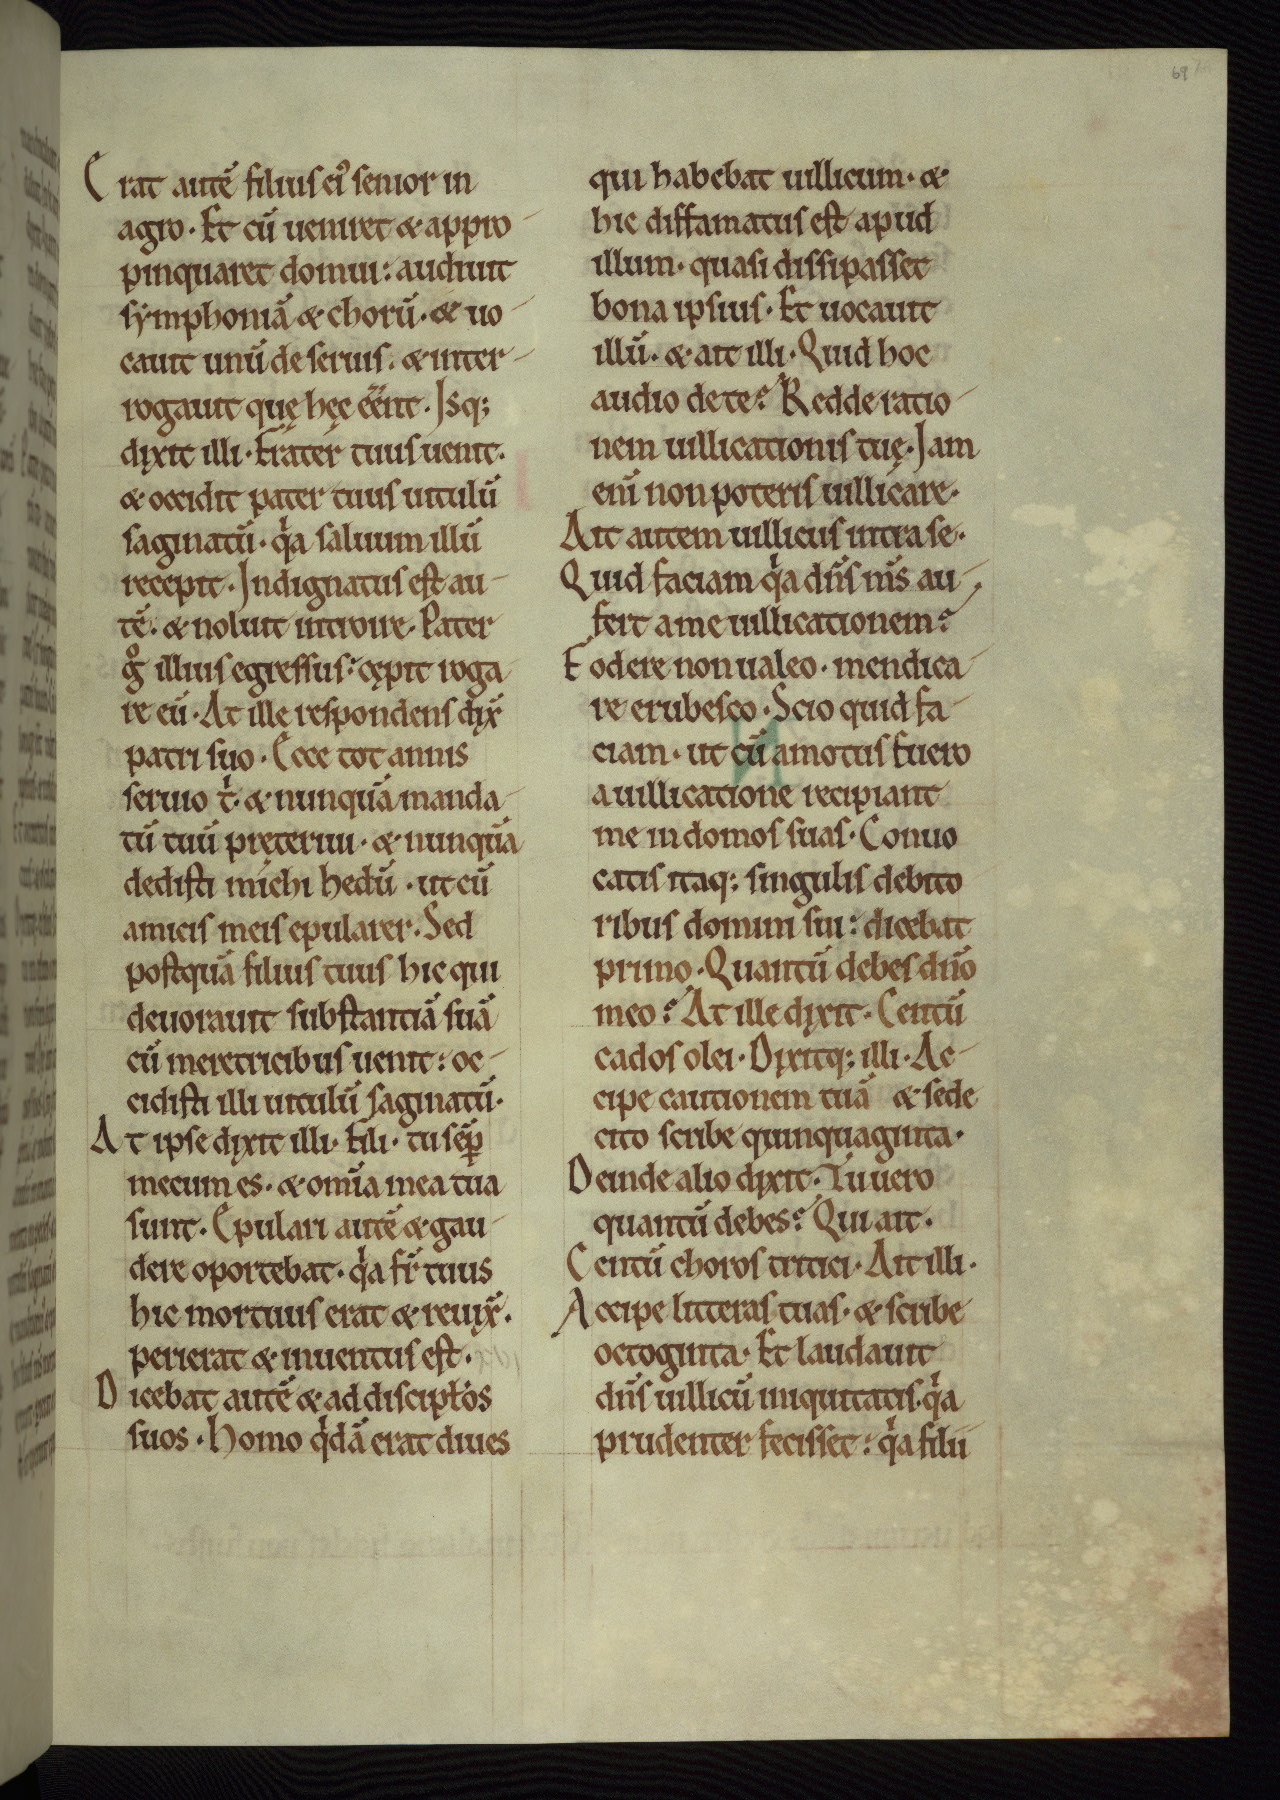 69
Erat autē filius ei᾽ senior in
agro. Et cū ueniret & appro
pinquaret domui: audiuit
sẏmphoniā & chorū. & uo
cauit unū de seruis. & inter
rogauit quę hęc eēnt. Isq;
dixit illi. Frater tuus uenit.
& occidit pater tuus uitulū
saginatū. qͥa saluum illū
recepit. Indignatus est au
tē. & noluit introire. Pater
gͦ illius egressus: cępit roga
re eū. At ille respondens dix̄
patri suo. Ecce tot annis
seruio tͥ. & nunquā manda
tū tuū pręteriui. & nunquā
dedisti michi hedū. ut cū
amicis meis epularer. Sed
postquā filius tuus hic qui
deuorauit substantiā suā
cū meretricibus uenit: oc
cidisti illi uitulū saginatū.
At ipse dixit illi. Fili. tu sēꝑ
mecum es. & om̄ia mea tua
sunt. Epulari autē & gau
dere oportebat. qͥa fr̄ tuus
hic mortuus erat & reuix̄.
perierat & inuentus est.
Dicebat autē & ad discipłos
suos. Homo qͥdā erat diues
qui habebat uillicum. &
hic diffamatus est apud
illum. quasi dissipasset
bona ipsius. Et uocauit
illū. & ait illi. Quid hoc
audio de te? Redde ratio
nem uillicationis tuę. Iam
eni̅ non poteris uillicare.
Ait autem uillicus intra se.
Quid faciam qͥa dn̄s m̄s au
fert a me uillicationem?
Fodere non ualeo. mendica
re erubesco. Scio quid fa
ciam. ut cū amotus fuero
a uillicatione recipiant
me in domos suas. Conuo
catis itaq; singulis debito
ribus domini sui: dicebat
primo. Quantū debes dn̄o
meo? At ille dixit. Centū
cados olei. Dixitq; illi. Ac
cipe cautionem tuā & sede
cito scribe quinquaginta.
Deinde alio dixit. Tu uero
quantū debes? Qui ait.
Centū choros tritici. Ait illi.
Accipe litteras tuas. & scribe
octoginta. Et laudauit
dn̄s uillicū iniquitatis. qͥa
prudenter fecisset: qͥa filii